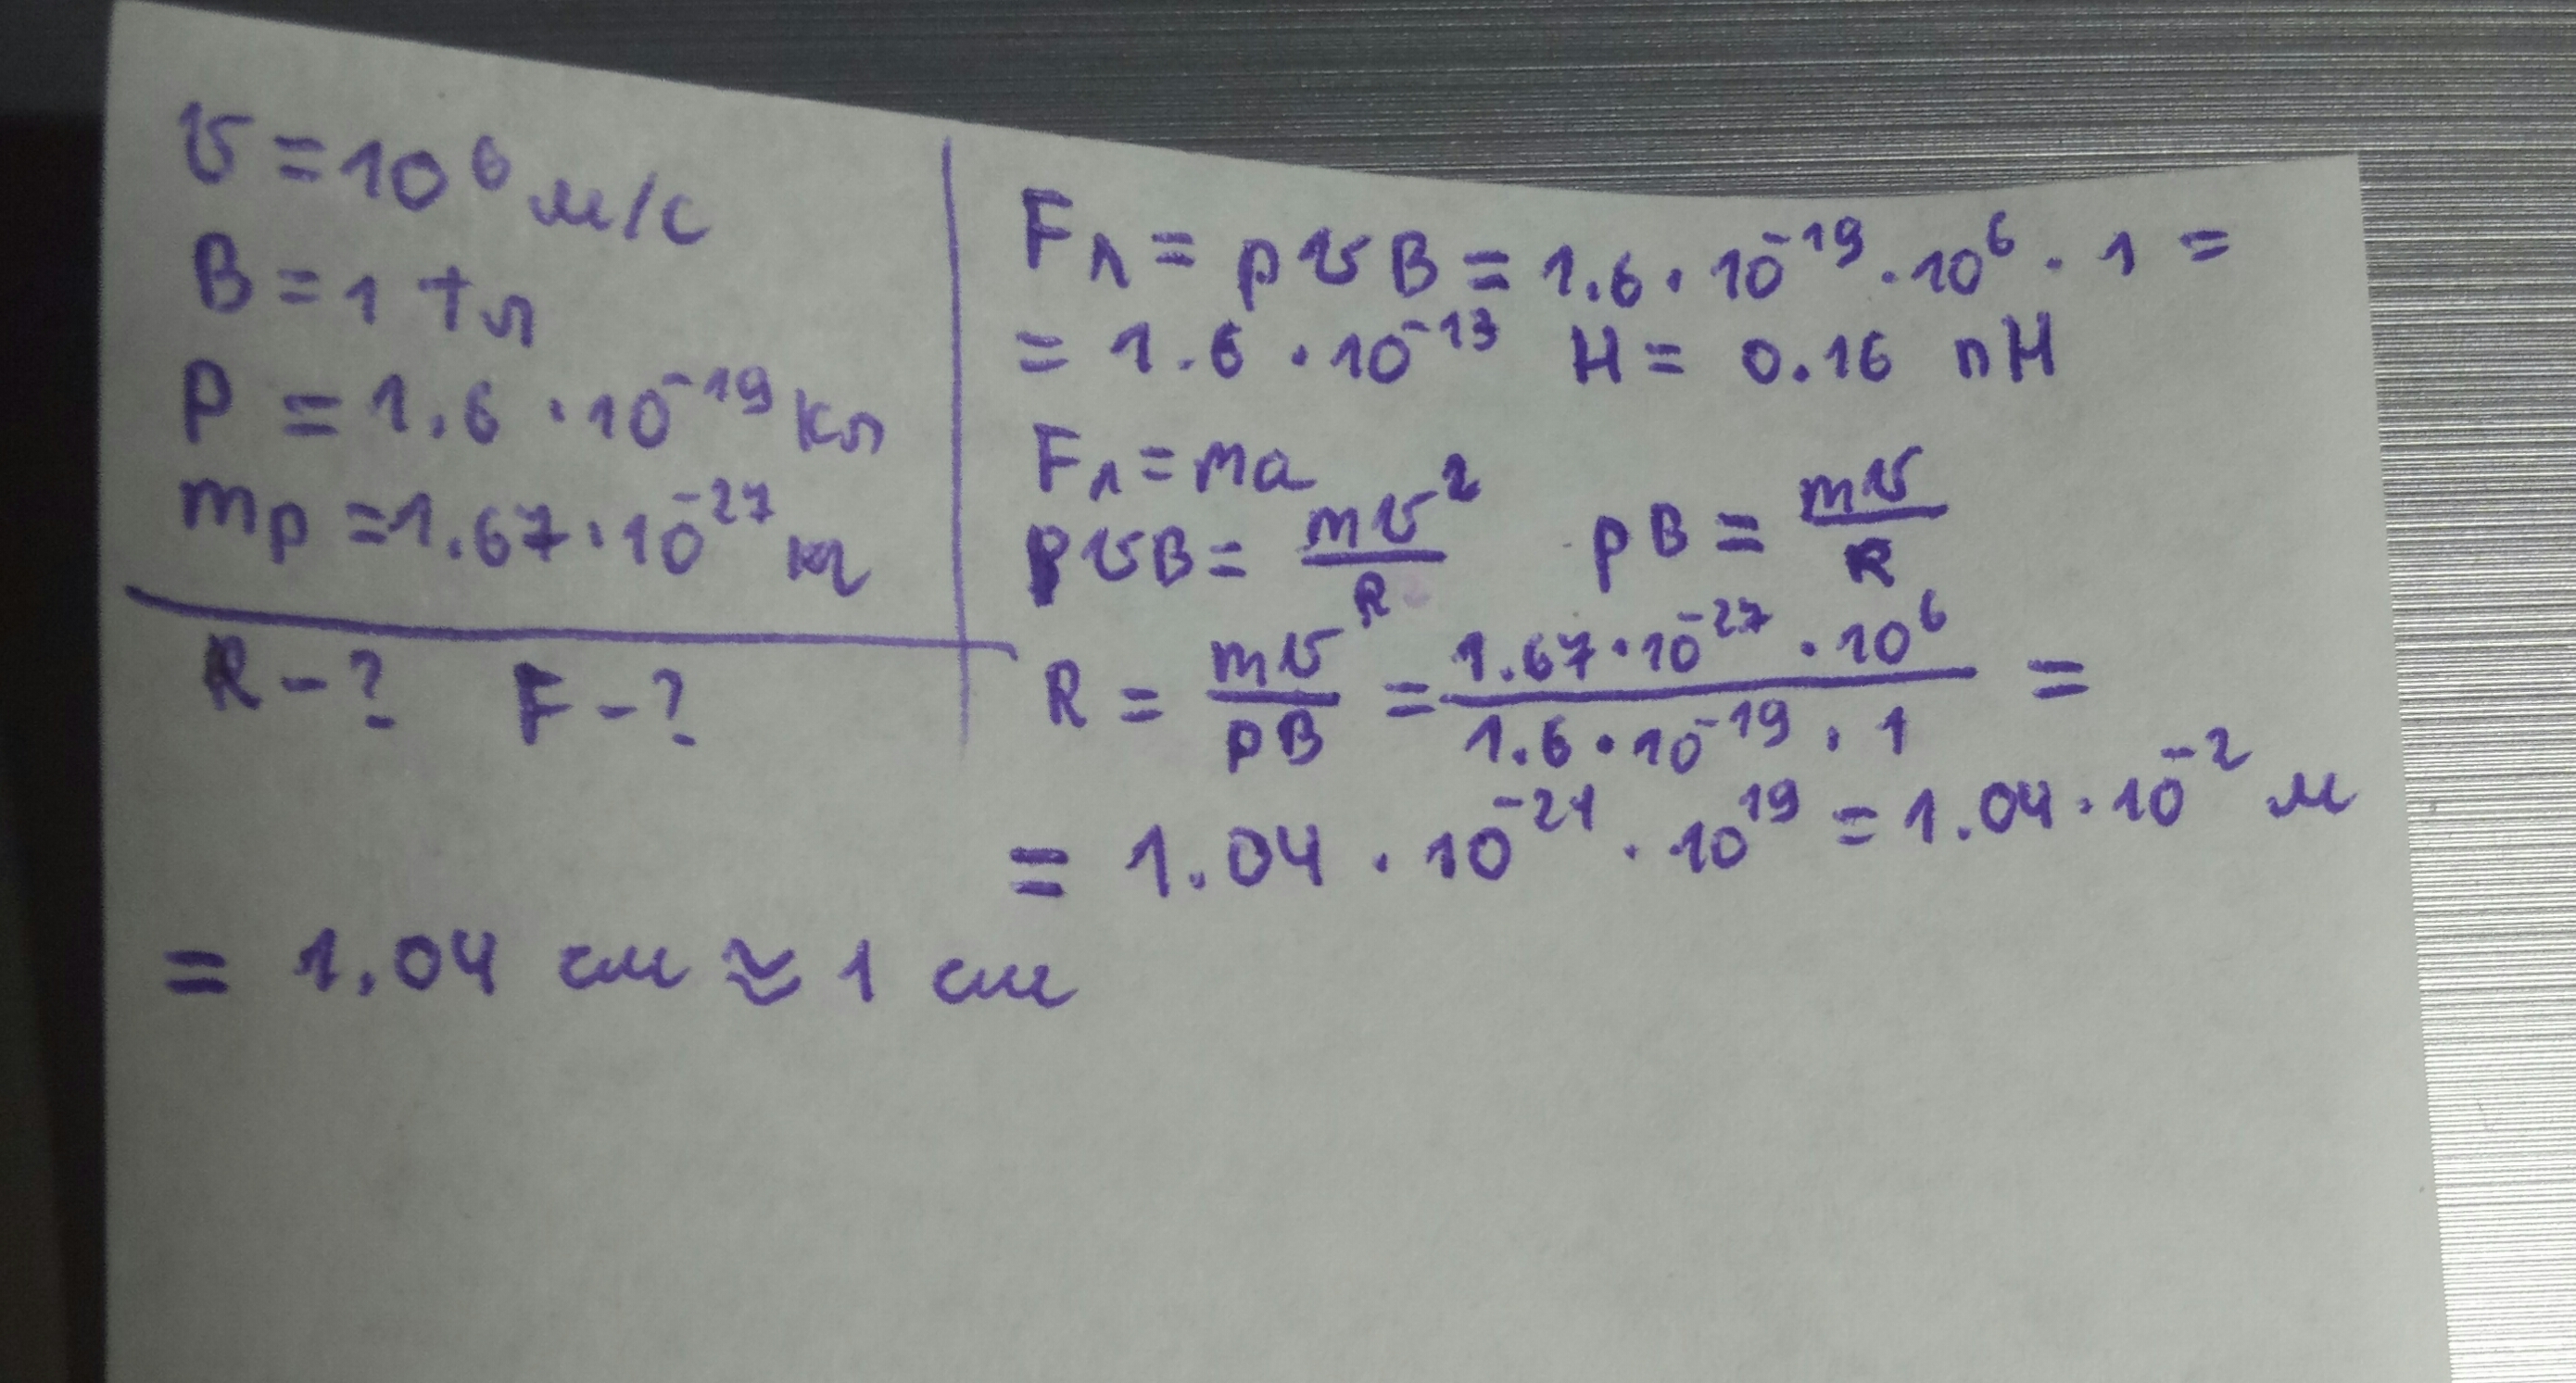 υ = 10⁶ м/с
B = 1 Тл
P = 1.6 · 10⁻¹⁹ Кл
mp = 1.67 · 10⁻²⁷ кг
R - ? F - ?
Fл = pυB = 1.6 · 10⁻¹⁹ · 10⁶ · 1 =
= 1.6 · 10⁻¹³ Н = 0.16 пН
Fл = ma
pυB = mυ²/R pB = mυ/R
R = mυ/pB = 1.67 · 10⁻²⁷ · 10⁶ / 1.6 · 10⁻¹⁹ · 1 =
= 1.04 · 10⁻²¹ · 10¹⁹ = 1.04 · 10⁻² м
= 1.04 см ≈ 1 см